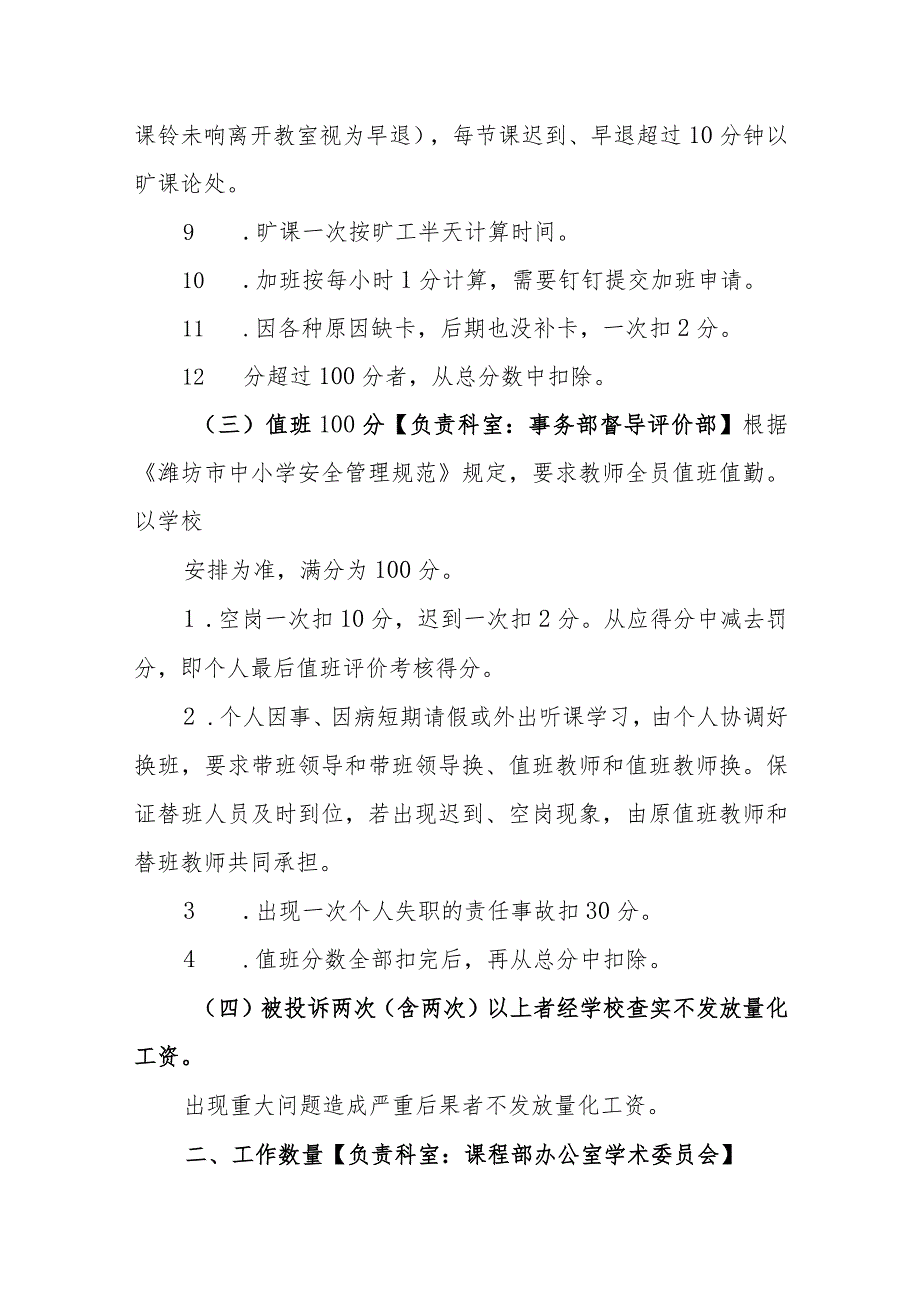 课铃未响离开教室视为早退），每节课迟到、早退超过 10 分钟以
旷课论处。
9 .旷课一次按旷工半天计算时间。
10 .加班按每小时 1 分计算，需要钉钉提交加班申请。
11 .因各种原因缺卡，后期也没补卡，一次扣 2 分。
12 分超过 100 分者，从总分数中扣除。
（三）值班 100 分【负责科室：事务部督导评价部】根据
《潍坊市中小学安全管理规范》规定，要求教师全员值班值勤。
以学校
安排为准，满分为 100 分。
1 .空岗一次扣 10 分，迟到一次扣 2 分。从应得分中减去罚
分，即个人最后值班评价考核得分。
2 .个人因事、因病短期请假或外出听课学习，由个人协调好
换班，要求带班领导和带班领导换、值班教师和值班教师换。保
证替班人员及时到位，若出现迟到、空岗现象，由原值班教师和
替班教师共同承担。
3 .出现一次个人失职的责任事故扣 30 分。
4 .值班分数全部扣完后，再从总分中扣除。
（四）被投诉两次（含两次）以上者经学校查实不发放量化
工资。
出现重大问题造成严重后果者不发放量化工资。
二、工作数量【负责科室：课程部办公室学术委员会】